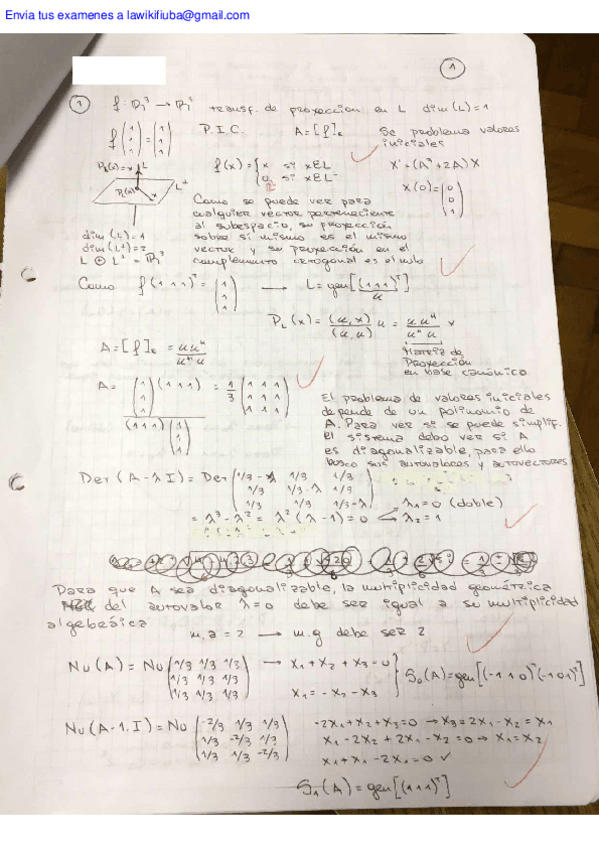 Envia tus examenes a lawikifiuba@gmail.com
1
1 f: R³ → R³ transf. de proyeccion en L dim(L)=1
f(1 1 1) = (1 1 1) P.I.C. A=[f]ε Se problema valores iniciales
f(x) = { x si x∈L X' = (A⁷+2A)X
0 si x∈L⊥ X(0) = (0 0 1)
L
L⊥
Como se puede ver para
cualquier vector perteneciente
al subespacio, su proyección
sobre si mismo es el mismo
vector y su proyección en el
complemento ortogonal es el nulo
dim(L)=1
dim(L⊥)=2
L ⊕ L⊥ = R³
Como f(1 1 1)ᵀ = (1 1 1) → L = gen[(1 1 1)ᵀ]
u
P_L(x) = (u,x)/(u,u) u = u uᴴ/uᴴ u x
A=[f]ε = u uᴴ/uᴴ u
Matriz de
Proyección
en base canónica
A = (1 1 1)(1 1 1)/(1 1 1)(1 1 1) = 1/3 (1 1 1 1 1 1 1 1 1)
El problema de valores iniciales
depende de un polinomio de
A. Para ver si se puede simplif.
el sistema debo ver si A
es diagonalizable, para ello
busco sus autovalores y autovectores
Det(A-λI) = Det (1/3-λ 1/3 1/3
1/3 1/3-λ 1/3
1/3 1/3 1/3-λ)
= λ³-λ² = λ²(λ-1) = 0 λ₁=0 (doble)
λ₂=1
Para que A sea diagonalizable, la multiplicidad geométrica
del autovalor λ=0 debe ser igual a su multiplicidad
algebráica
m.a = 2 → m.g debe ser 2
Nu(A) = Nu (1/3 1/3 1/3 → x₁+x₂+x₃=0
1/3 1/3 1/3 S₀(A)=gen[(-1 1 0)ᵀ(-1 0 1)ᵀ]
1/3 1/3 1/3) x₁=-x₂-x₃
Nu(A-1.I) = Nu (-2/3 1/3 1/3 -2x₁+x₂+x₃=0 → x₃=2x₁-x₂=x₁
1/3 -2/3 1/3 x₁-2x₂+2x₁-x₂=0 → x₁=x₂
1/3 1/3 -2/3) x₁+x₁-2x₁=0 ✓
S₁(A)=gen[(1 1 1)ᵀ]